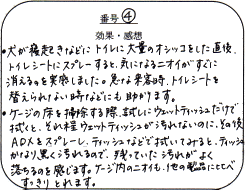 番号④
効果・感想
・犬が寝起きなどにトイレに大量のオシッコをした直後、
トイレシートにスプレーすると、気になるニオイがすぐに
消えるのを実感しました。急な来客時、トイレシートを
替えられない時などにも助かります。
・ケージの床を掃除する際、試しにウェットティッシュだけで
拭くと、それ程ウェットティッシュが汚れないのに、その後
ADAをスプレーし、ティッシュなどで拭いてみると、ティッシュ
がかなり黒く汚れるので、残っていた汚れがよく
落ちるのを感じます。ケージ内のニオイも、他の製品にくらべ
すっきりとれます。